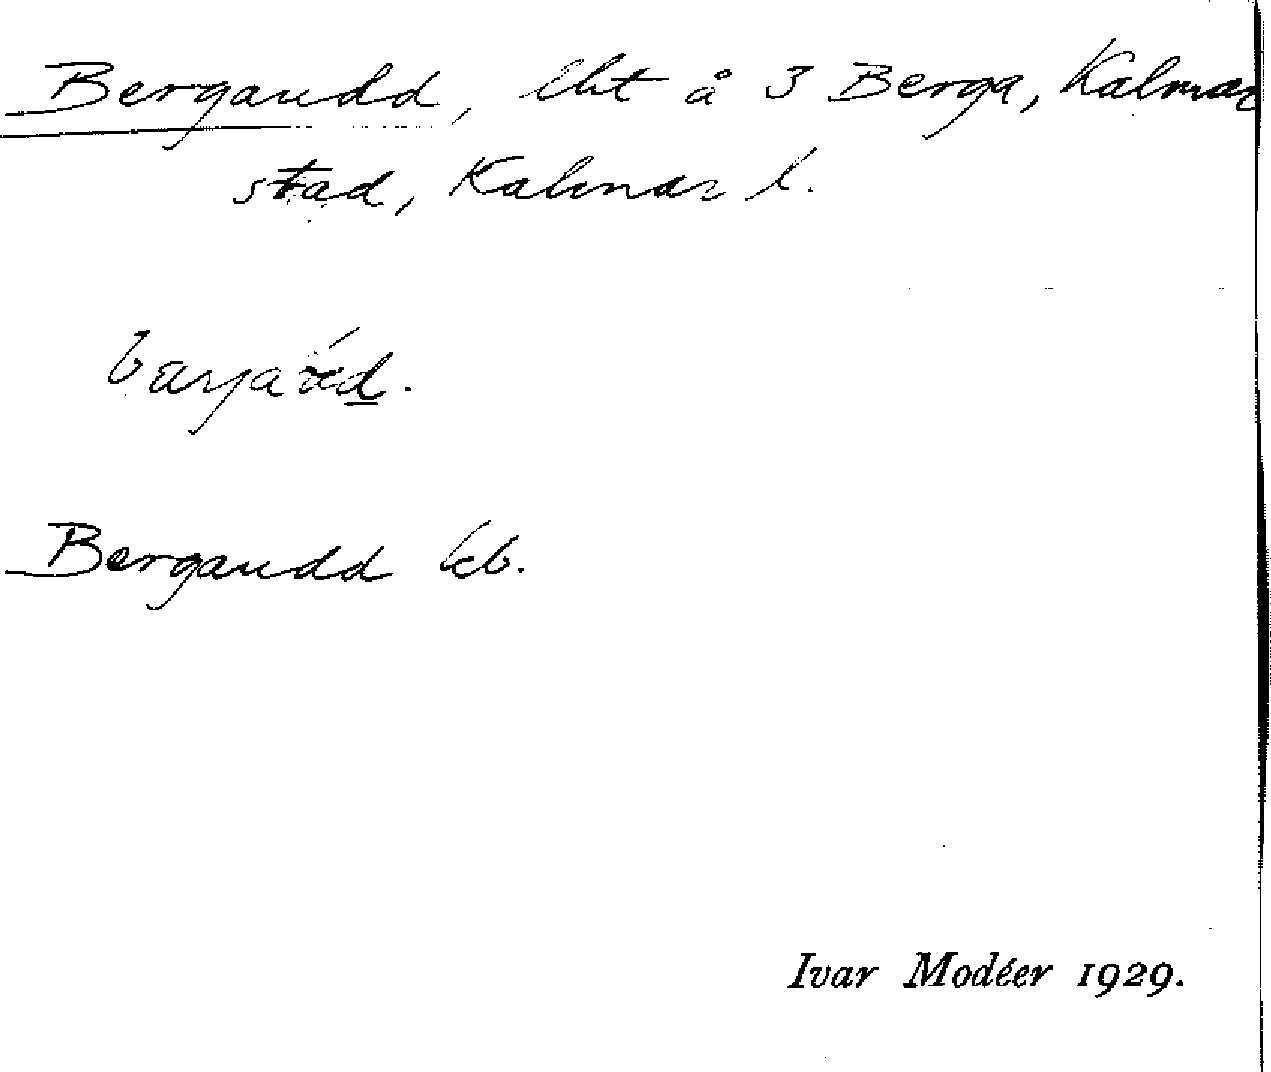 Bergaudd, lht å 3 Berga, Kalmar
stad, Kalmar l.
Bergaudd kb.
Ivar Modéer 1929.